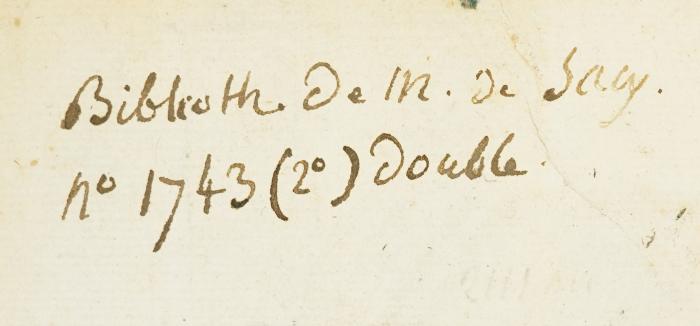 Biblioth. De M. de Sacy.
nº 1743 (2º) Double.